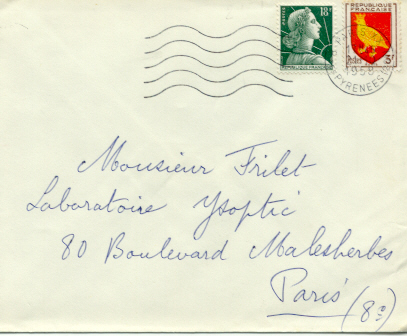 POSTES 18F
RÉPUBLIQUE FRANÇAISE
RÉPUBLIQUE
FRANÇAISE
3F
1958
PYRENEES
Monsieur Frilet
Laboratoire Ysoptic
80 Boulevard Malesherbes
Paris (8e)